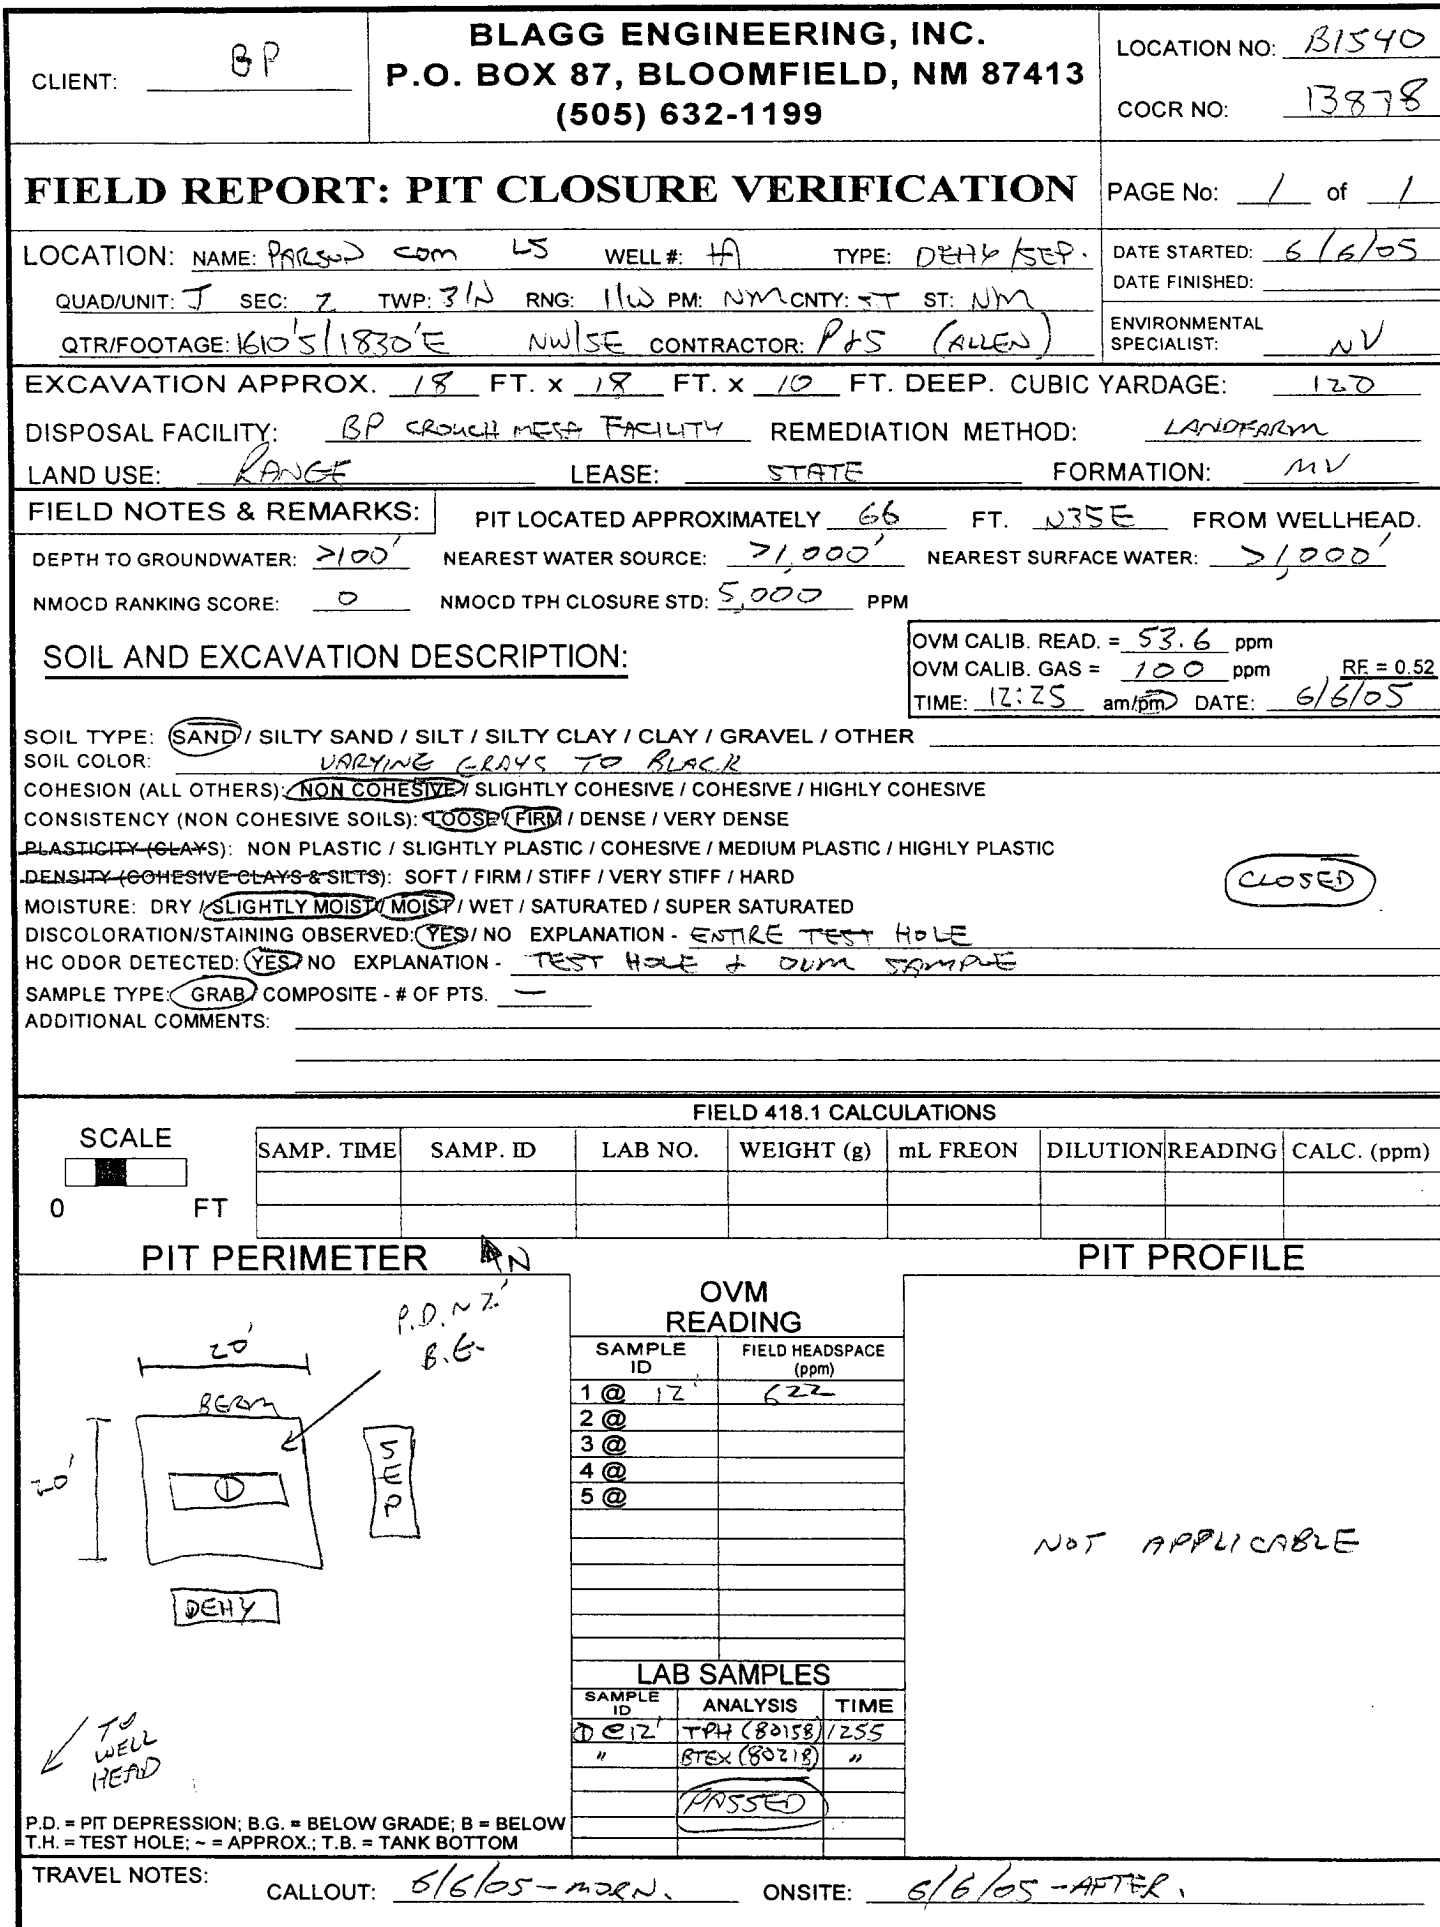 CLIENT: BP
BLAGG ENGINEERING, INC.
P.O. BOX 87, BLOOMFIELD, NM 87413
(505) 632-1199
LOCATION NO: B1540
COCR NO: 13878
FIELD REPORT: PIT CLOSURE VERIFICATION
PAGE No: 1 of 1
LOCATION: NAME: PARSON COM LS WELL #: 4A TYPE: DEHY/SEP.
QUAD/UNIT: J SEC: 2 TWP: 31N RNG: 11W PM: NM CNTY: ST ST: NM
QTR/FOOTAGE: 1610'S/1830'E NW/SE CONTRACTOR: P&S (ALLEN)
DATE STARTED: 6/6/05
DATE FINISHED:
ENVIRONMENTAL
SPECIALIST: NV
EXCAVATION APPROX. 18 FT. x 18 FT. x 10 FT. DEEP. CUBIC YARDAGE: 120
DISPOSAL FACILITY: BP CROUCH MESA FACILITY REMEDIATION METHOD: LANDFARM
LAND USE: RANGE LEASE: STATE FORMATION: MV
FIELD NOTES & REMARKS: PIT LOCATED APPROXIMATELY 66 FT. N35E FROM WELLHEAD.
DEPTH TO GROUNDWATER: >100' NEAREST WATER SOURCE: >1,000' NEAREST SURFACE WATER: >1,000'
NMOCD RANKING SCORE: 0 NMOCD TPH CLOSURE STD: 5,000 PPM
SOIL AND EXCAVATION DESCRIPTION:
OVM CALIB. READ. = 53.6 ppm
OVM CALIB. GAS = 100 ppm RF = 0.52
TIME: 12:25 am/pm DATE: 6/6/05
SOIL TYPE: SAND / SILTY SAND / SILT / SILTY CLAY / CLAY / GRAVEL / OTHER
SOIL COLOR: VARYING GRAYS TO BLACK
COHESION (ALL OTHERS): NON COHESIVE / SLIGHTLY COHESIVE / COHESIVE / HIGHLY COHESIVE
CONSISTENCY (NON COHESIVE SOILS): LOOSE / FIRM / DENSE / VERY DENSE
PLASTICITY (CLAYS): NON PLASTIC / SLIGHTLY PLASTIC / COHESIVE / MEDIUM PLASTIC / HIGHLY PLASTIC
DENSITY (COHESIVE CLAYS & SILTS): SOFT / FIRM / STIFF / VERY STIFF / HARD
CLOSED
MOISTURE: DRY / SLIGHTLY MOIST / MOIST / WET / SATURATED / SUPER SATURATED
DISCOLORATION/STAINING OBSERVED: YES / NO EXPLANATION - ENTIRE TEST HOLE
HC ODOR DETECTED: YES / NO EXPLANATION - TEST HOLE & OVM SAMPLE
SAMPLE TYPE: GRAB / COMPOSITE - # OF PTS. —
ADDITIONAL COMMENTS:
FIELD 418.1 CALCULATIONS
SCALE
0 FT
SAMP. TIME SAMP. ID LAB NO. WEIGHT (g) mL FREON DILUTION READING CALC. (ppm)
PIT PERIMETER N
PIT PROFILE
P.D. ~ 2'
B.G.
20'
BERM
20'
1
SEP
DEHY
TO
WELL
HEAD
P.D. = PIT DEPRESSION; B.G. = BELOW GRADE; B = BELOW
T.H. = TEST HOLE; ~ = APPROX.; T.B. = TANK BOTTOM
OVM
READING
SAMPLE ID FIELD HEADSPACE (ppm)
1 @ 12' 622
2 @
3 @
4 @
5 @
LAB SAMPLES
SAMPLE ID ANALYSIS TIME
① @ 12' TPH (8015B) 1255
" BTEX (8021B) "
PASSED
NOT APPLICABLE
TRAVEL NOTES: CALLOUT: 6/6/05 - MORN. ONSITE: 6/6/05 - AFTER.